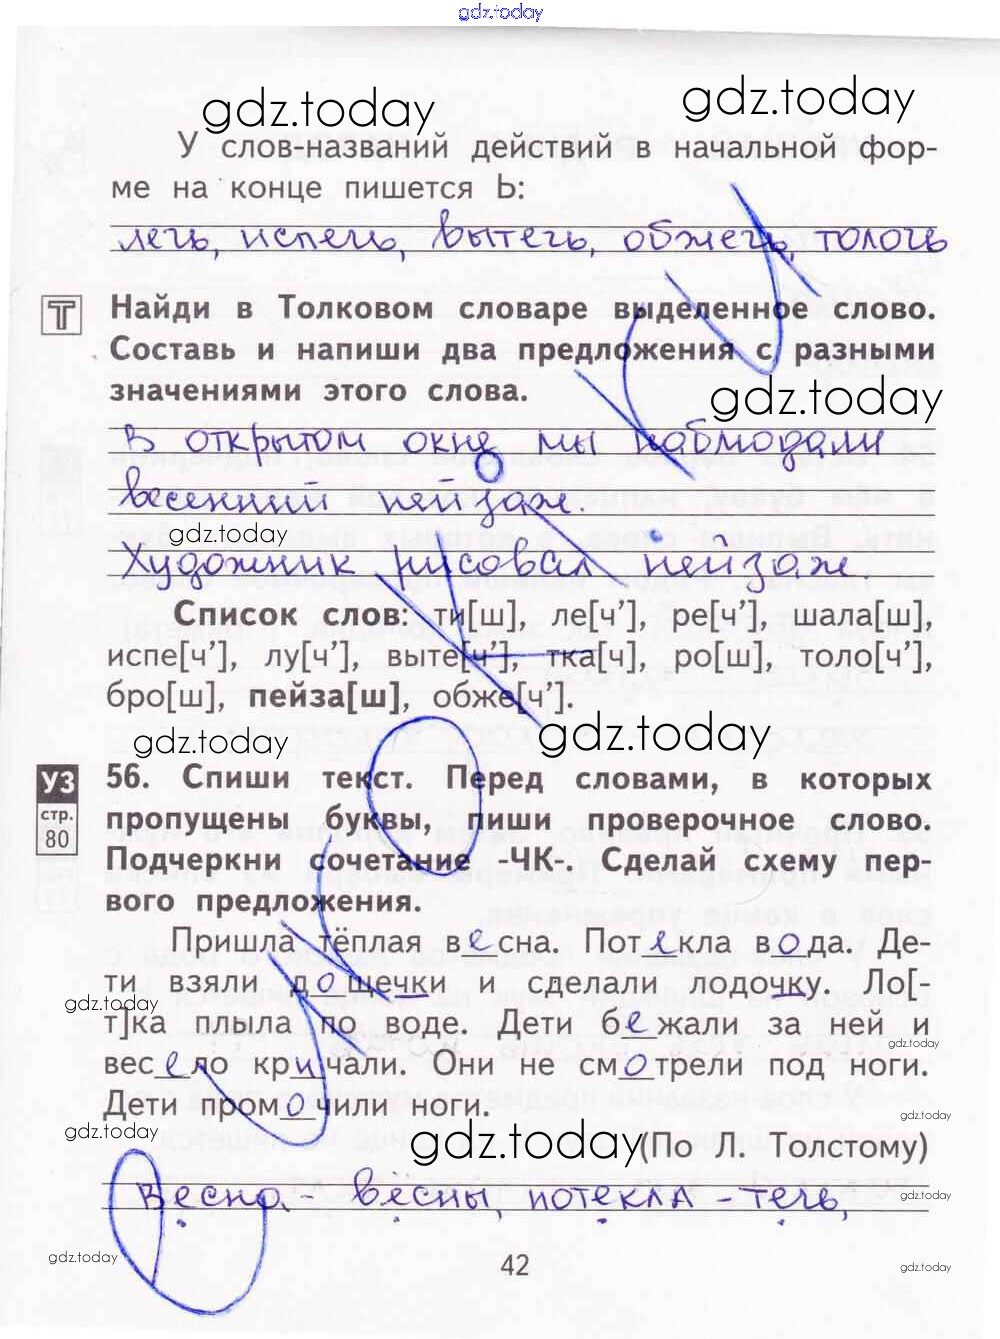 gdz.today
gdz.today gdz.today
У слов-названий действий в начальной фор-
ме на конце пишется Ь:
лечь, испечь, вытечь, обжечь, толочь
Т Найди в Толковом словаре выделенное слово.
Составь и напиши два предложения с разными
значениями этого слова.
gdz.today
В открытом окне мы наблюдали
весенний пейзаж.
gdz.today
Художник рисовал пейзаж
Список слов: ти[ш], ле[ч’], ре[ч’], шала[ш],
испе[ч’], лу[ч’], выте[ч’], тка[ч], ро[ш], толо[ч’],
бро[ш], пейза[ш], обже[ч’].
gdz.today gdz.today
УЗ 56. Спиши текст. Перед словами, в которых
стр. 80 пропущены буквы, пиши проверочное слово.
Подчеркни сочетание -ЧК-. Сделай схему пер-
вого предложения.
Пришла тёплая в е сна. Пот е кла в о да. Де-
ти взяли д о щечки и сделали лодочку. Ло[-
gdz.today
т]ка плыла по воде. Дети б е жали за ней и
gdz.today
вес е ло кр и чали. Они не см о трели под ноги.
Дети пром о чили ноги.
gdz.today
gdz.today gdz.today
(По Л. Толстому)
Весна - вёсны, потекла - течь,
gdz.today
gdz.today 42 gdz.today